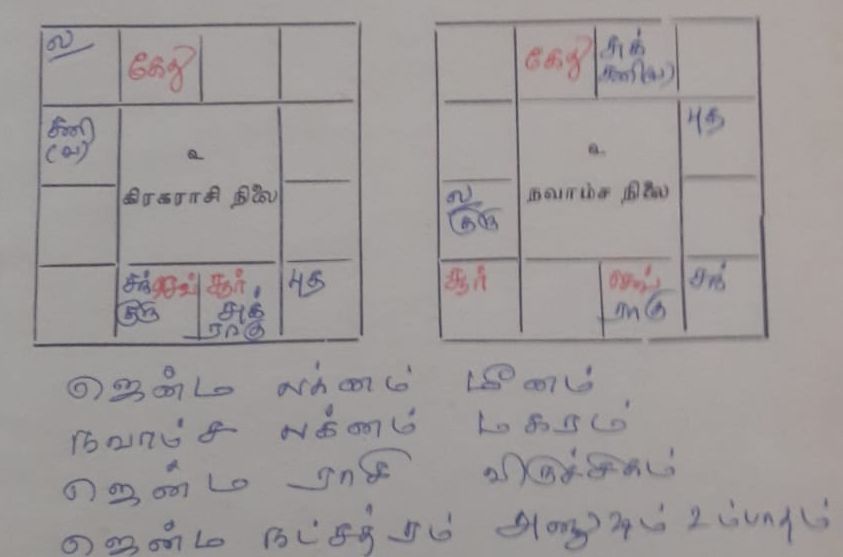 ல
கேது
சனி
(வ)
உ
கிரகராசி நிலை
சந் செவ்
குரு
சூர்
சுக்
ராகு
புத
கேது
சுக்
சனி(வ)
புத
உ
நவாம்ச நிலை
ல
குரு
சூர்
செவ்
ராகு
சந்
ஜென்ம லக்னம் மீனம்
நவாம்ச லக்னம் மகரம்
ஜென்ம ராசி விருச்சிகம்
ஜென்ம நட்சத்ரம் அனுஷம் 2ம்பாதம்